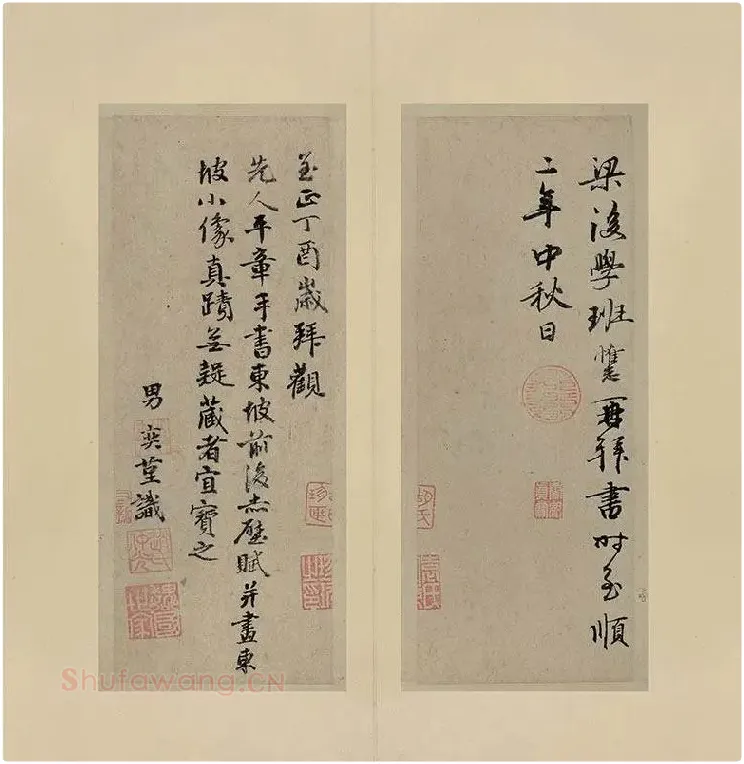 梁後學班惟再拜書時至順
二年中秋日
至正丁酉歲拜觀
先人平章手書東坡前後赤壁賦并畫東
坡小像真蹟無疑藏者宜寶之
男奕謹識
Shufawang.CN